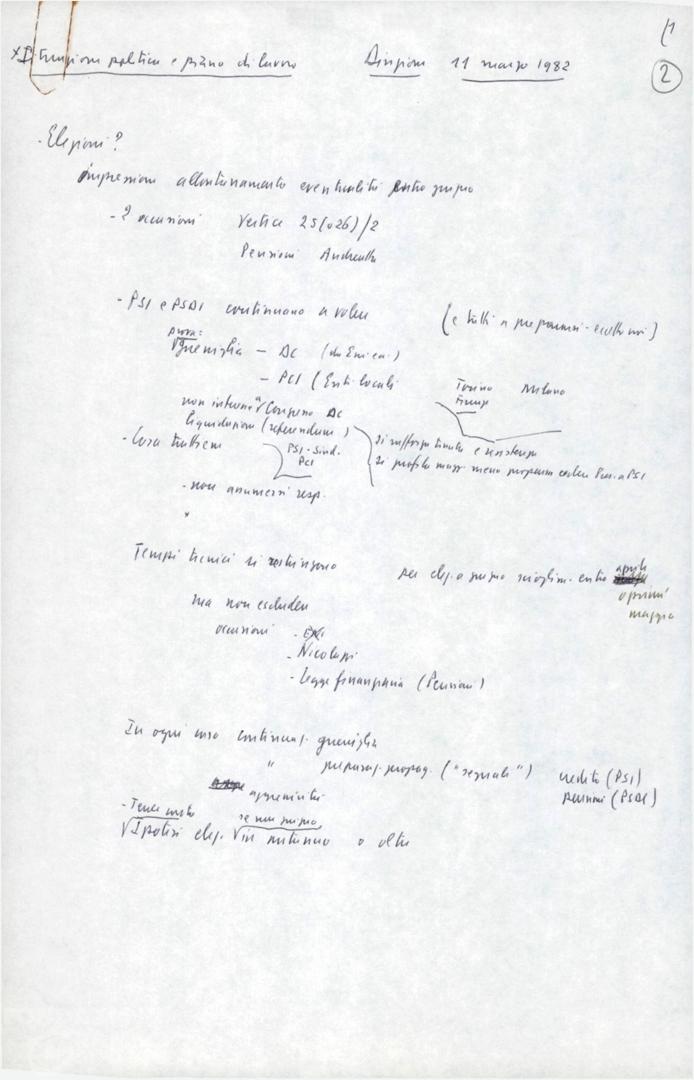 (1
x Situazione politica e piano di lavoro Direzione 11 marzo 1982
2
- Elezioni?
impressione allontanamento eventualità entro giugno
- 2 occasioni Vertice 25 (o 26)/2
Pensioni Andreatta
- PSI e PSDI continuano a volere (e tutti a prepararsi -
prova:
guerriglia - DC (da Eni ecc.)
- PCI (Enti locali Torino Milano
Firenze
non interesse Congresso DC
liquidazioni (referendum)
- Cosa trattiene PSI - Sind. si rafforza e resistenza
PCI si profila magg. meno propensa PSI
- non assumersi resp.
x
Tempi tecnici si restringono per elez. a giugno scioglim. entro aprile
o primi
maggio
ma non escludere
occasioni - ENI
- Nicolazzi
- Legge finanziaria (Pensioni)
In ogni caso continuaz. guerriglia
" preparaz. propag. ("segnali") credito (PSI)
pensioni (PSDI)
aggressività
- Tener conto se non giugno,
Ipotesi elez. in autunno o oltre